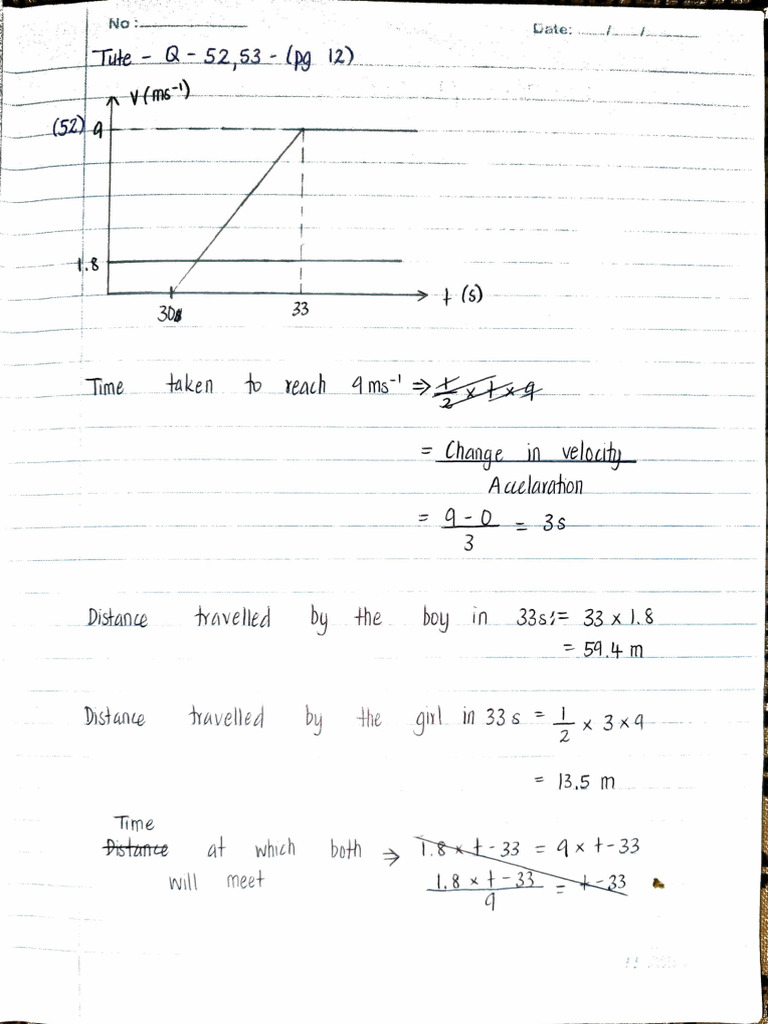 No :
Date: ...../...../.....
Tute - Q - 52,53 - (pg 12)
V (ms⁻¹)
(52) 9
1.8
t (s)
30
33
Time taken to reach 9 ms⁻¹ ⇒ 1/2 × t × 9
= Change in velocity / Accelaration
= 9 - 0 / 3 = 3s
Distance travelled by the boy in 33s = 33 × 1.8
= 59.4 m
Distance travelled by the girl in 33 s = 1/2 × 3 × 9
= 13.5 m
Time
Distance at which both ⇒ 1.8 × t - 33 = 9 × t - 33
will meet 1.8 × t - 33 / 9 = t - 33